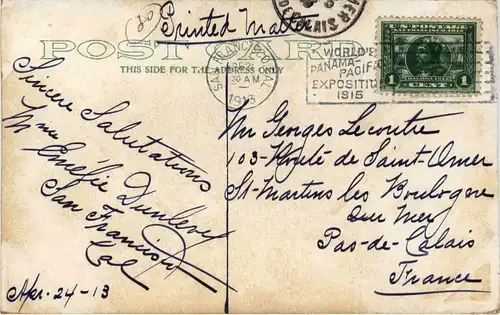 Printed Matter
POST CARD
THIS SIDE FOR THE ADDRESS ONLY
SAN FRANCISCO, CAL.
APR 25
30 AM
1913
WORLD'S
PANAMA-
PACIFIC
EXPOSITION
1915
1 CENT 1
Sincere Salutations
Mme Emélie Dunlevy
San Francisco
Cal
Apr. 24-13
Mr Georges Lecoutre
103-Route de Saint-Omer
St-Martins les Boulogne
sur Mer
Pas-de-Calais
France